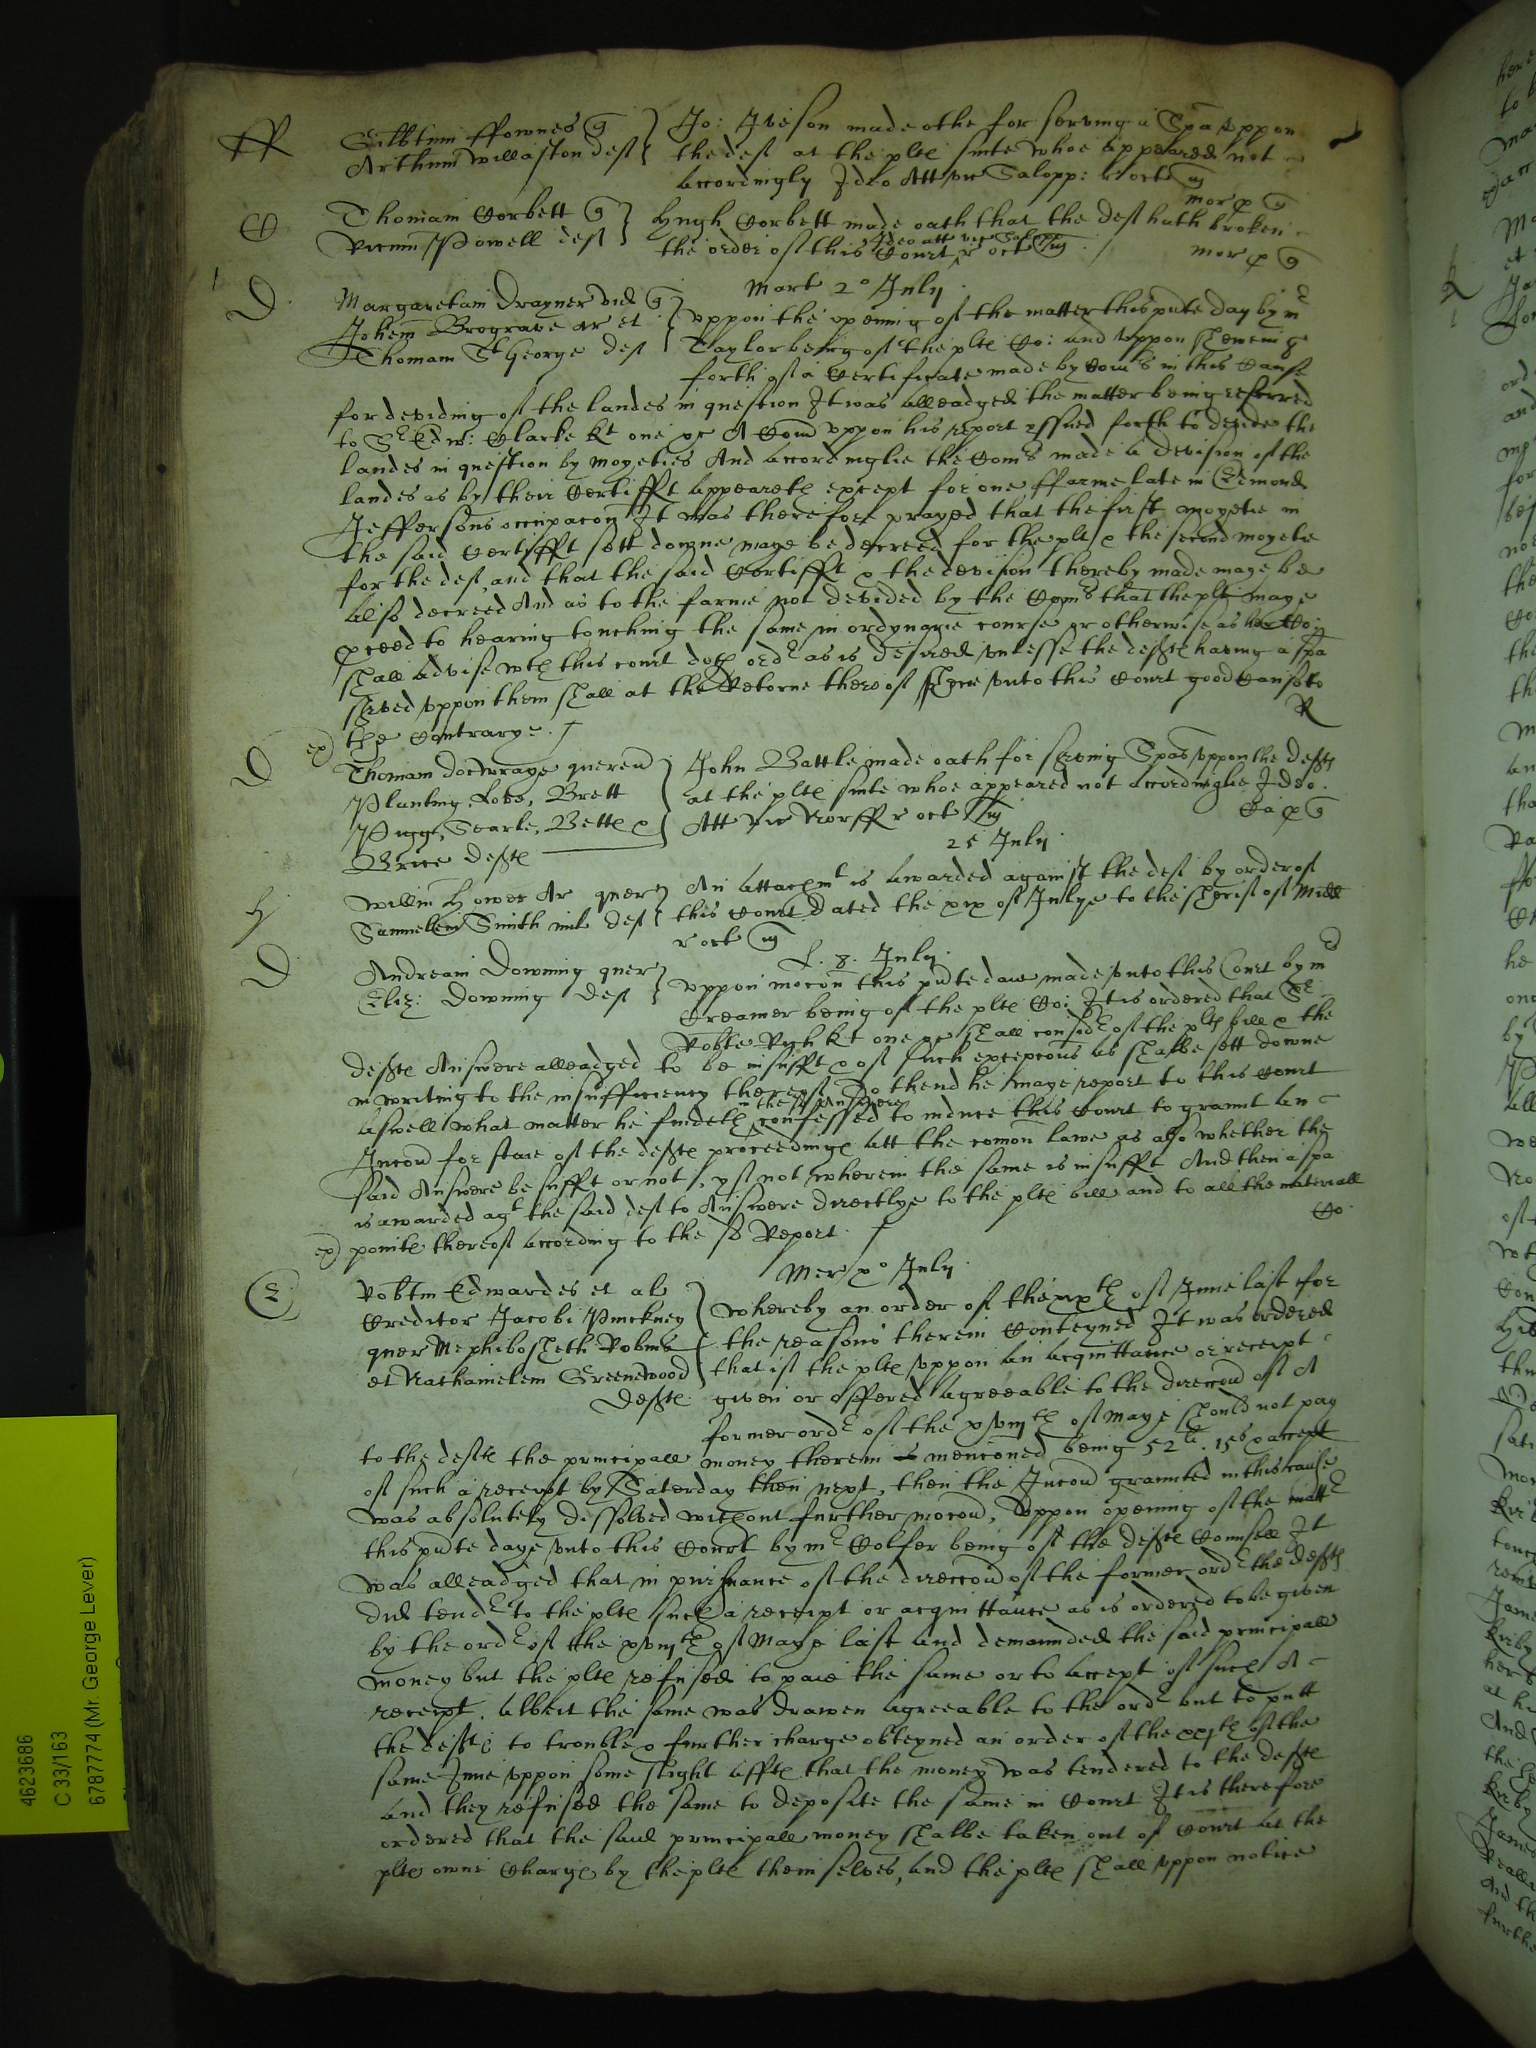 ff
Gilbtum ffownes q
Arthum Willaston def
Jo: Iveson made othe for serving a Spa uppon
the def at the plte suite whoe appeared not
accordingly Ideo Att vic Salopp: r oct
mor p q
C
Thomam Corbett q
Powell def
Hugh Corbett made oath that the def hath broken
the order of this Court Ideo att vic Salopp r oct
mor p q
Mart 2º July
D
Margaretam Drayner vid q
Johem Brograve ar et
Thomam St George def
uppon the opening of the matter this pnte day by mr
Taylor being of the plte Co: and uppon shewing
forth of a Certificate made by Comrs in this Cause
for deviding of the landes in question It was alleadged the matter being referred
to Sr Edw: Clarke kt one &c A Comn uppon his report yssued forth to devide the
landes in question by moyeties And accordinglie the Comrs made a devision of the
landes as by their Certifft appeareth except for one ffarme late in Edmond
Jeffersons occupacon It was therefore prayed that the first moyetie in
the said Certifft sett downe maye be decreed for the plt & the second moyetie
for the def and that the said Certifft & the devision thereby made maye be
also decreed And as to the farme not devided by the Comrs that the plt maye
pceed to hearing touching the same in ordynarie course or otherwise as her Co:
shall advise wch this court doth ordr as is desired unlesse the defte having a spa
served uppon them shall at the Retorne thereof shewe unto this Court good Cause to
the Contrarye.
R
ex)
D
Thomam docwraye queren
Planting, Lobe, Brett
Pigg, Searle, Bette &
Brice defte
John Battle made oath for serving Spas uppon the defte
at the plte suite whoe appeared not accordinglie Ideo
Att vic Norff r oct
Ca p q
25 July
H
Willm Howes Ar quer
Samuelem Smith mil def
An attachmt is awarded against the def by order of
this Court dated the xix of Julye to the sherif of Midd
r oct
S. 8. July
D
Andream Downing quer
Eliz: Downing def
uppon mocon this pnte daie made unto this Court by mr
Creamer being of the plte Co: It is ordered that Sr
Robte Rich kt one &c shall considr of the plts bill & the
defte Answere alleadged to be insufft & of such excepcons as shalbe sett downe
in writing to the insufficiency thereof To thend he maye report to this Court
aswell what matter he findeth in the sd Answere confessed to induce this Court to graunt an
Iniuncon for staie of the defte proceedinge att the comon lawe as also whether the
said Answere be sufft or not, yf not wherein the same is insufft And then a spa
is awarded agt the said def to Answere directlye to the plte bill and to all the materiall
Co
ex) pointe thereof according to the sd Report.
Mer xº July
E
Robtm Edwardes et al
Creditor Jacobi Pinckney
quer Mephibosheth Robins
et Nathanielem Greenewood
defte
whereby an order of the xixth of June last for
the reasons therein Conteyned It was ordered
that if the plte uppon an acquittance or receipt
given or offered agreeable to the direccon of A
former ordr of the xviijth of Maye should not pay
to the defte the principall money therein mencioned being 52li. 15s & accept
of such a receipt by Saterday then next, then the Iniuncon graunted in this cause
was absolutely dissolved without further mocon, Uppon opening of the mattr
this pnte daye unto this Court by mr Colfer being of the defte Counsell It
was alleadged that in pursuance of the direccon of the former ordr the defte
did tendr to the plte such a receipt or acquittance as is ordered to be given
by the ordr of the xviijth of Maye last and demaunded the said principall
money but the plte refused to paie the same or to accept of such A
receipt. Albeit the same was drawen agreeable to the ordr but to putt
the defte to trouble & further charge obteyned an order of the xxjth of the
same June uppon some slight affte that the money was tendered to the defte
and they refused the same to deposite the same in Court It is therefore
ordered that the said principall money shalbe taken out of Court at the
plte owne Charge by the plte themselves, and the plte shall uppon notice
4623686
C 33/163
6787774 (Mr. George Lever)